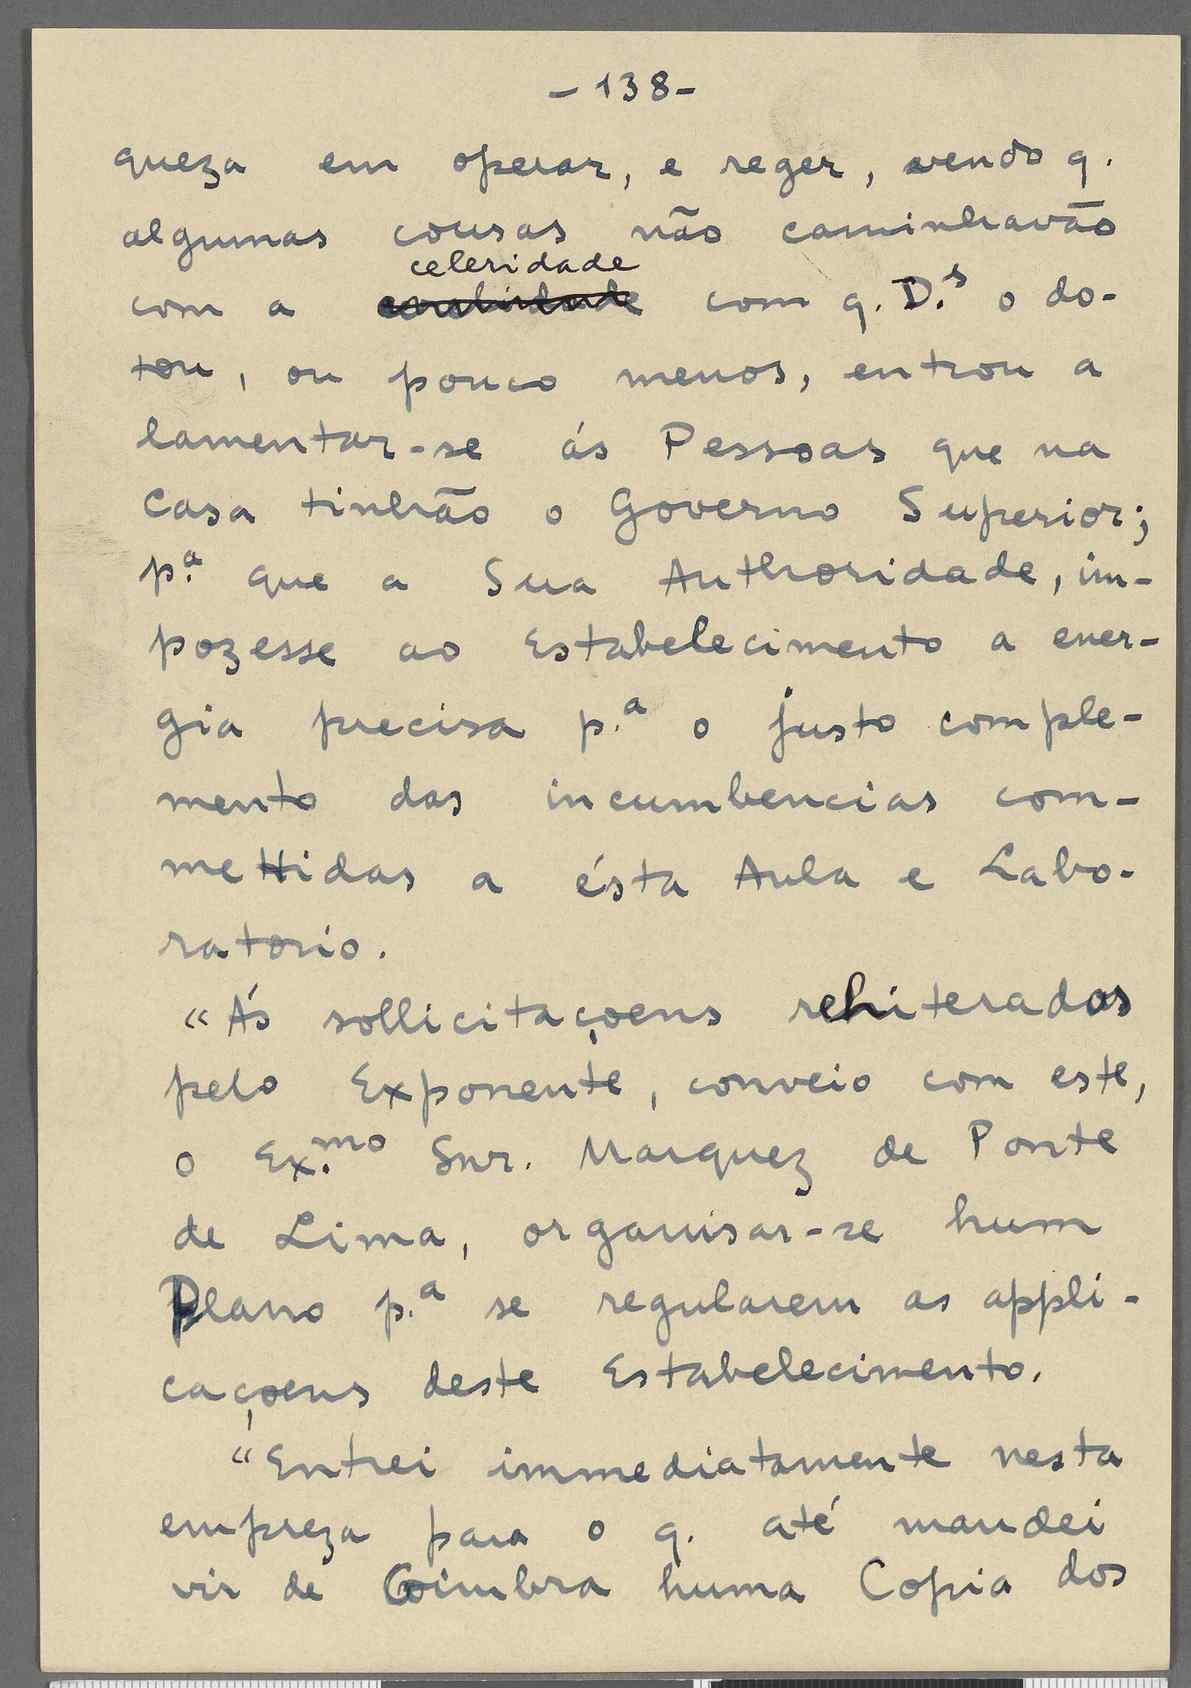 -138-
queza em operar, e reger, vendo q.
algumas cousas não caminhavão
celeridade
com a com q. D.s o do-
tou, ou pouco menos, entrou a
lamentar-se ás Pessoas que na
Casa tinhão o Governo Superior;
p.a que a Sua Authoridade, im-
pozesse ao Estabelecimento a ener-
gia precisa p.a o justo comple-
mento das incumbencias com-
mettidas a ésta Aula e Labo-
ratorio.
"Ás sollicitaçoens rehiteradas
pelo Exponente, conveio com este,
o Ex.mo Snr. Marquez de Ponte
de Lima, organisar-se hum
Plano p.a se regularem as appli-
caçoens deste Estabelecimento.
"Entrei immediatamente nesta
empreza para o q. até mandei
vir de Coimbra huma Copia dos